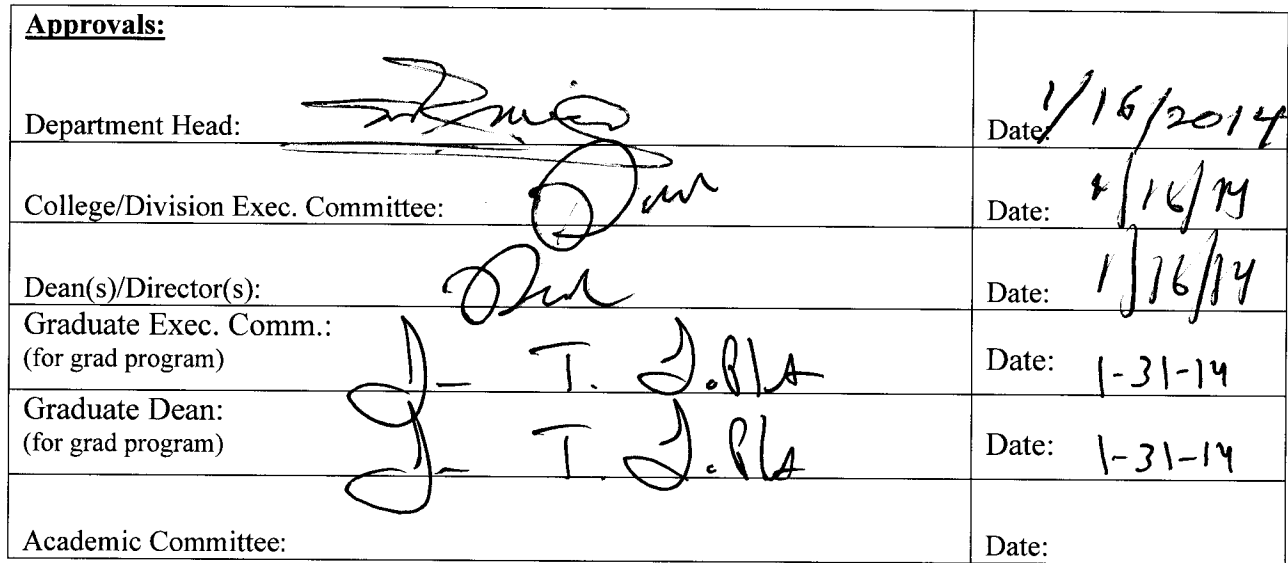 Approvals:
Department Head: Date: 1/16/2014
College/Division Exec. Committee: Date: 1/16/14
Dean(s)/Director(s): Date: 1/16/14
Graduate Exec. Comm.:
(for grad program) Date: 1-31-14
Graduate Dean:
(for grad program) Date: 1-31-14
Academic Committee: Date: